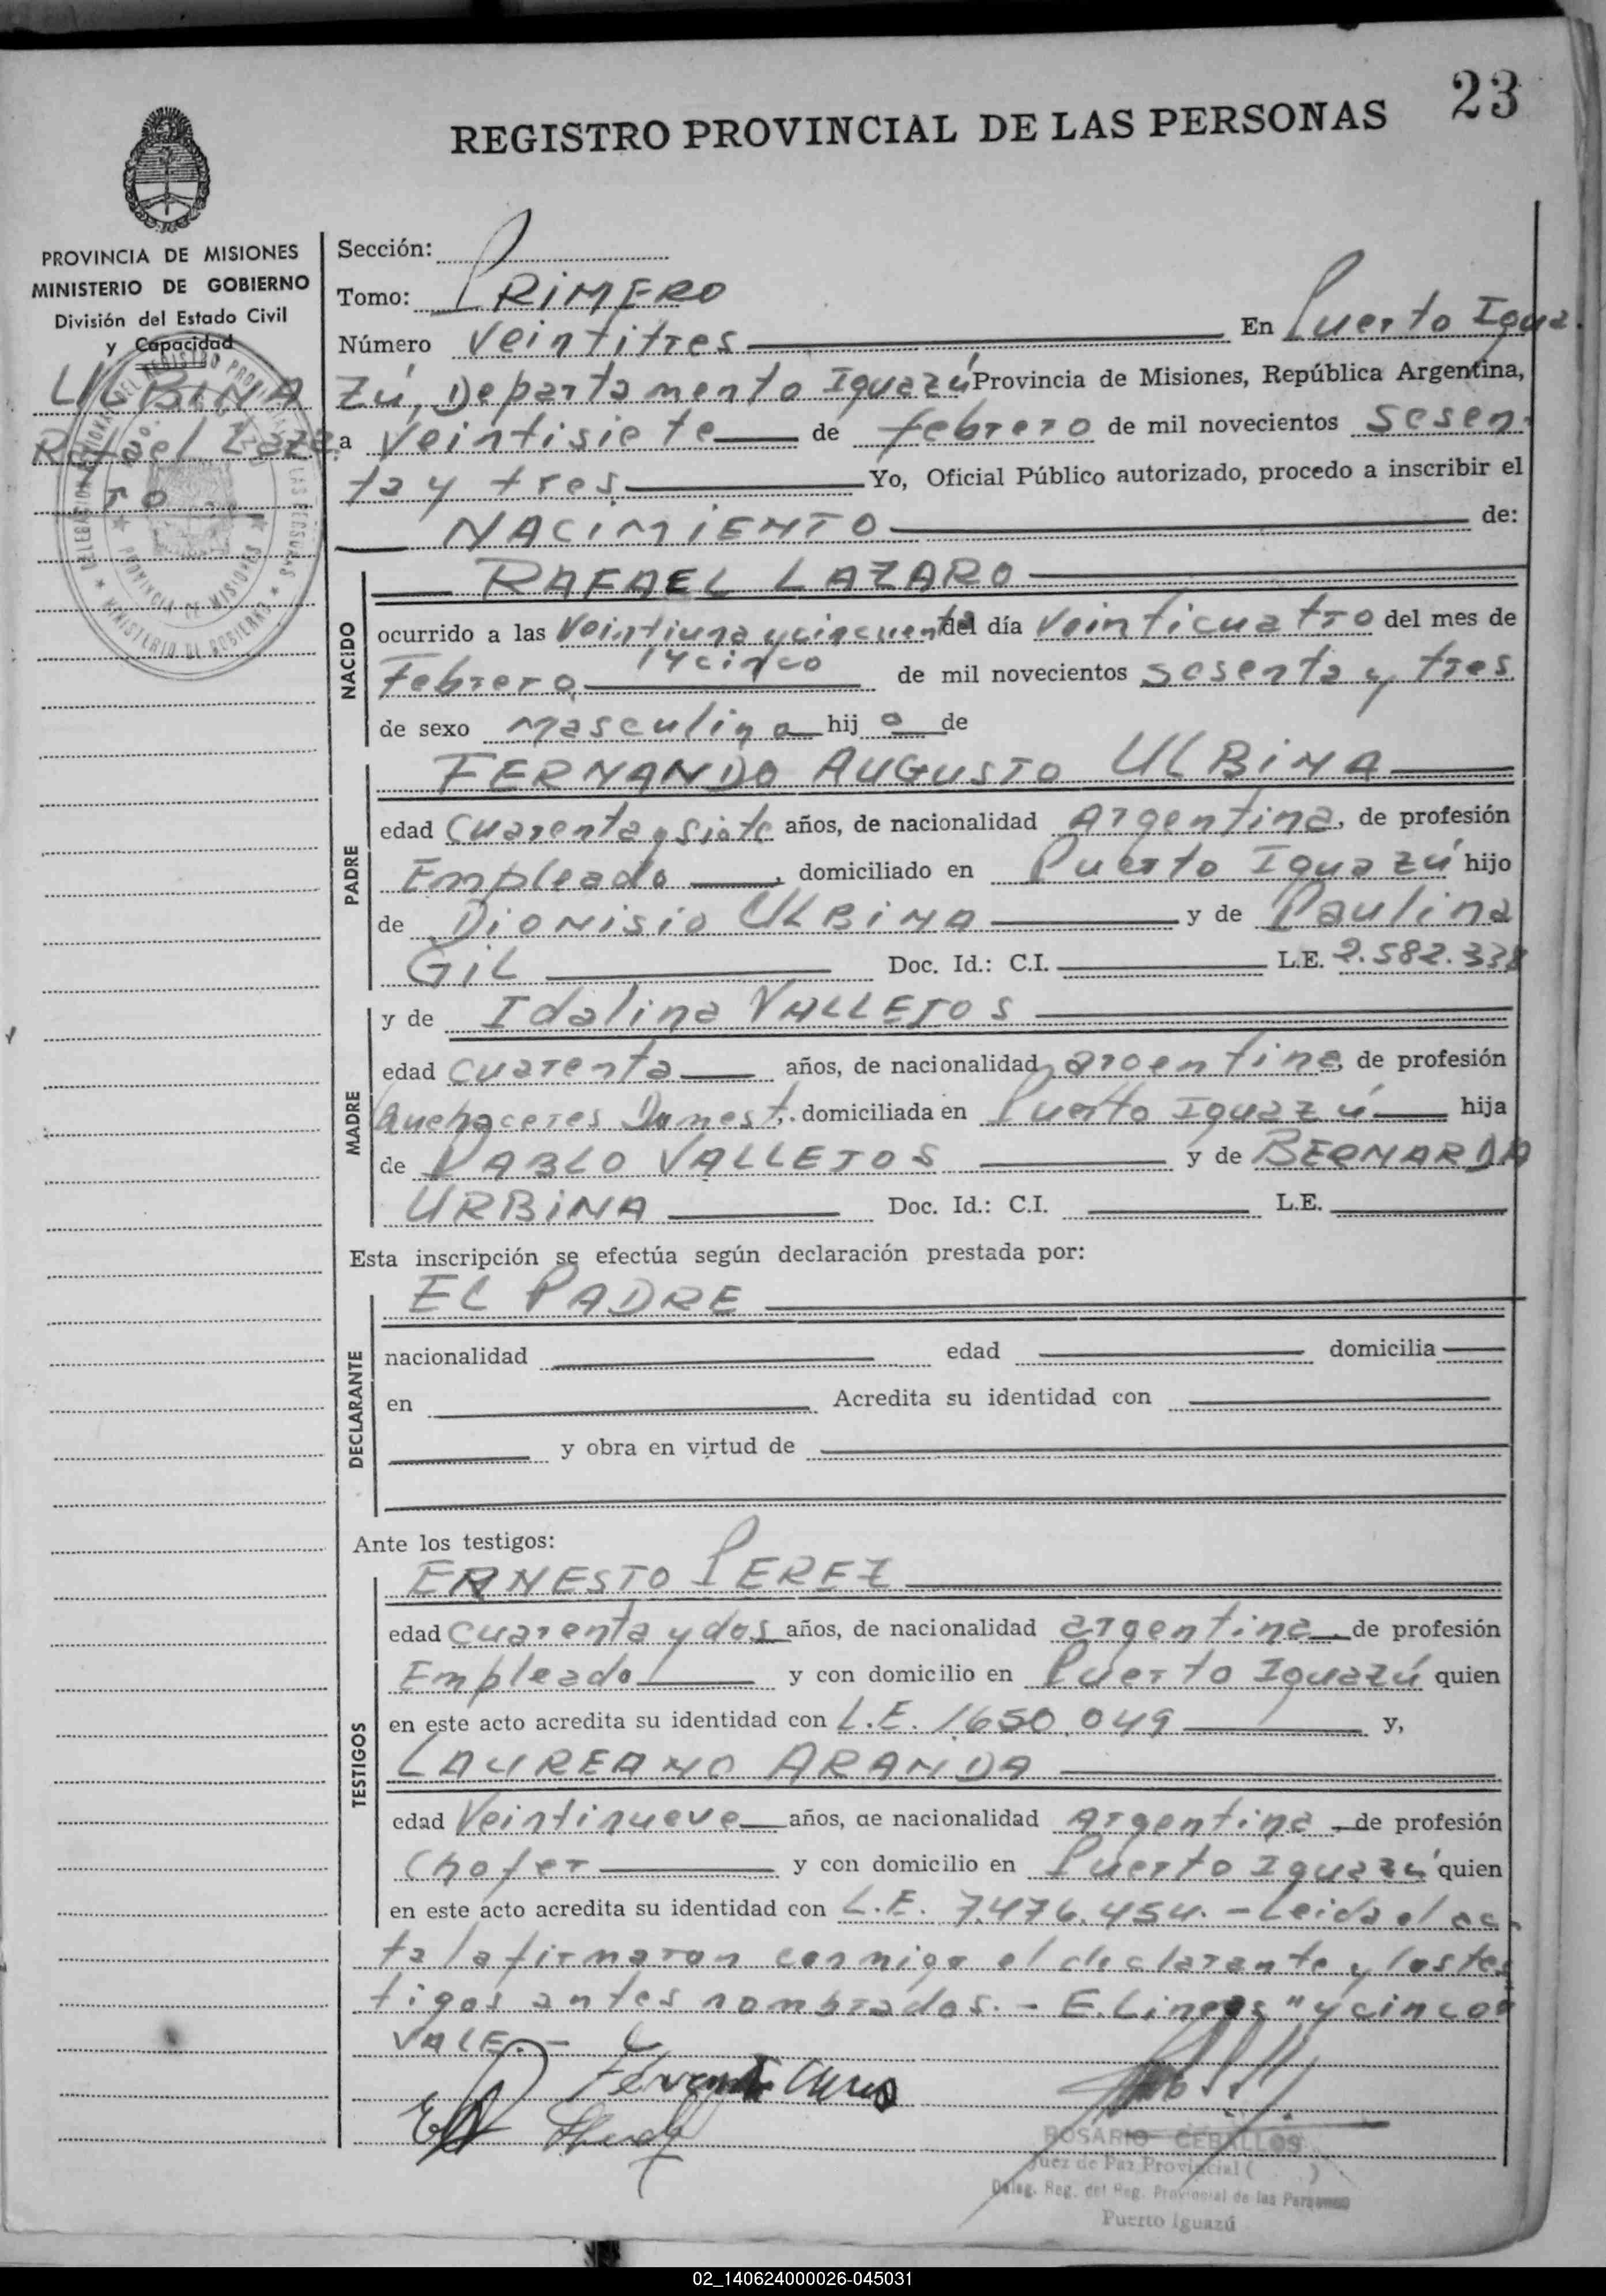 23
REGISTRO PROVINCIAL DE LAS PERSONAS
PROVINCIA DE MISIONES
MINISTERIO DE GOBIERNO
División del Estado Civil
y Capacidad
ULBINA
Rafael Laza
ro
Sección:
Tomo: PRIMERO
Número Veintitres En Puerto Igua
zú, Departamento Iguazú Provincia de Misiones, República Argentina,
a Veintisiete de febrero de mil novecientos sesen
ta y tres Yo, Oficial Público autorizado, procedo a inscribir el
NACIMIENTO de:
NACIDO
RAFAEL LAZARO
ocurrido a las Veintiuna y cincuenta del día Veinticuatro del mes de
y cinco
Febrero de mil novecientos sesenta y tres
de sexo Masculino hij o de
PADRE
FERNANDO AUGUSTO ULBINA
edad Cuarenta y siete años, de nacionalidad Argentina, de profesión
Empleado, domiciliado en Puerto Iguazú hijo
de Dionisio ULBINA y de Paulina
GIL Doc. Id.: C.I. L.E. 2.582.338
MADRE
y de Idalina VALLEJOS
edad cuarenta años, de nacionalidad argentina, de profesión
Quehaceres Domest. domiciliada en Puerto Iguazú hija
de PABLO VALLEJOS y de BERNARDA
URBINA Doc. Id.: C.I. L.E.
Esta inscripción se efectúa según declaración prestada por:
DECLARANTE
EL PADRE
nacionalidad edad domicilia
en Acredita su identidad con
y obra en virtud de
Ante los testigos:
TESTIGOS
ERNESTO PEREZ
edad cuarenta y dos años, de nacionalidad argentina, de profesión
Empleado y con domicilio en Puerto Iguazú quien
en este acto acredita su identidad con L.E. 1.650.049 y,
LAUREANO ARANDA
edad Veintinueve años, de nacionalidad Argentina de profesión
Chofer y con domicilio en Puerto Iguazú quien
en este acto acredita su identidad con L.E. 7.476.454. - Leida el ac
ta la firmaron conmigo el declarante y los tes
tigos antes nombrados. - E. Lineas "y cinco"
VALE. -
ROSARIO CEBALLOS
Juez de Paz Provincial ( )
Deleg. Reg. del Reg. Provincial de las Personas
Puerto Iguazú
02_140624000026-045031